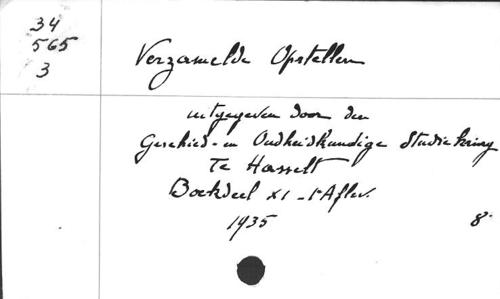 34
565
3
Verzamelde Opstellen
uitgegeven door den
Geschied- en Oudheidkundige Studiekring
Te Hasselt
Boekdeel XI - 1e Aflev.
1935 8°